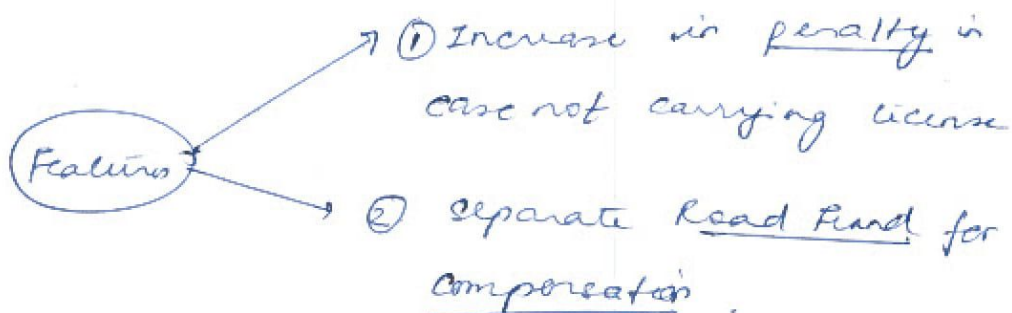 ① Increase in penalty in
case not carrying license
Features
② Separate Road Fund for
compensation.